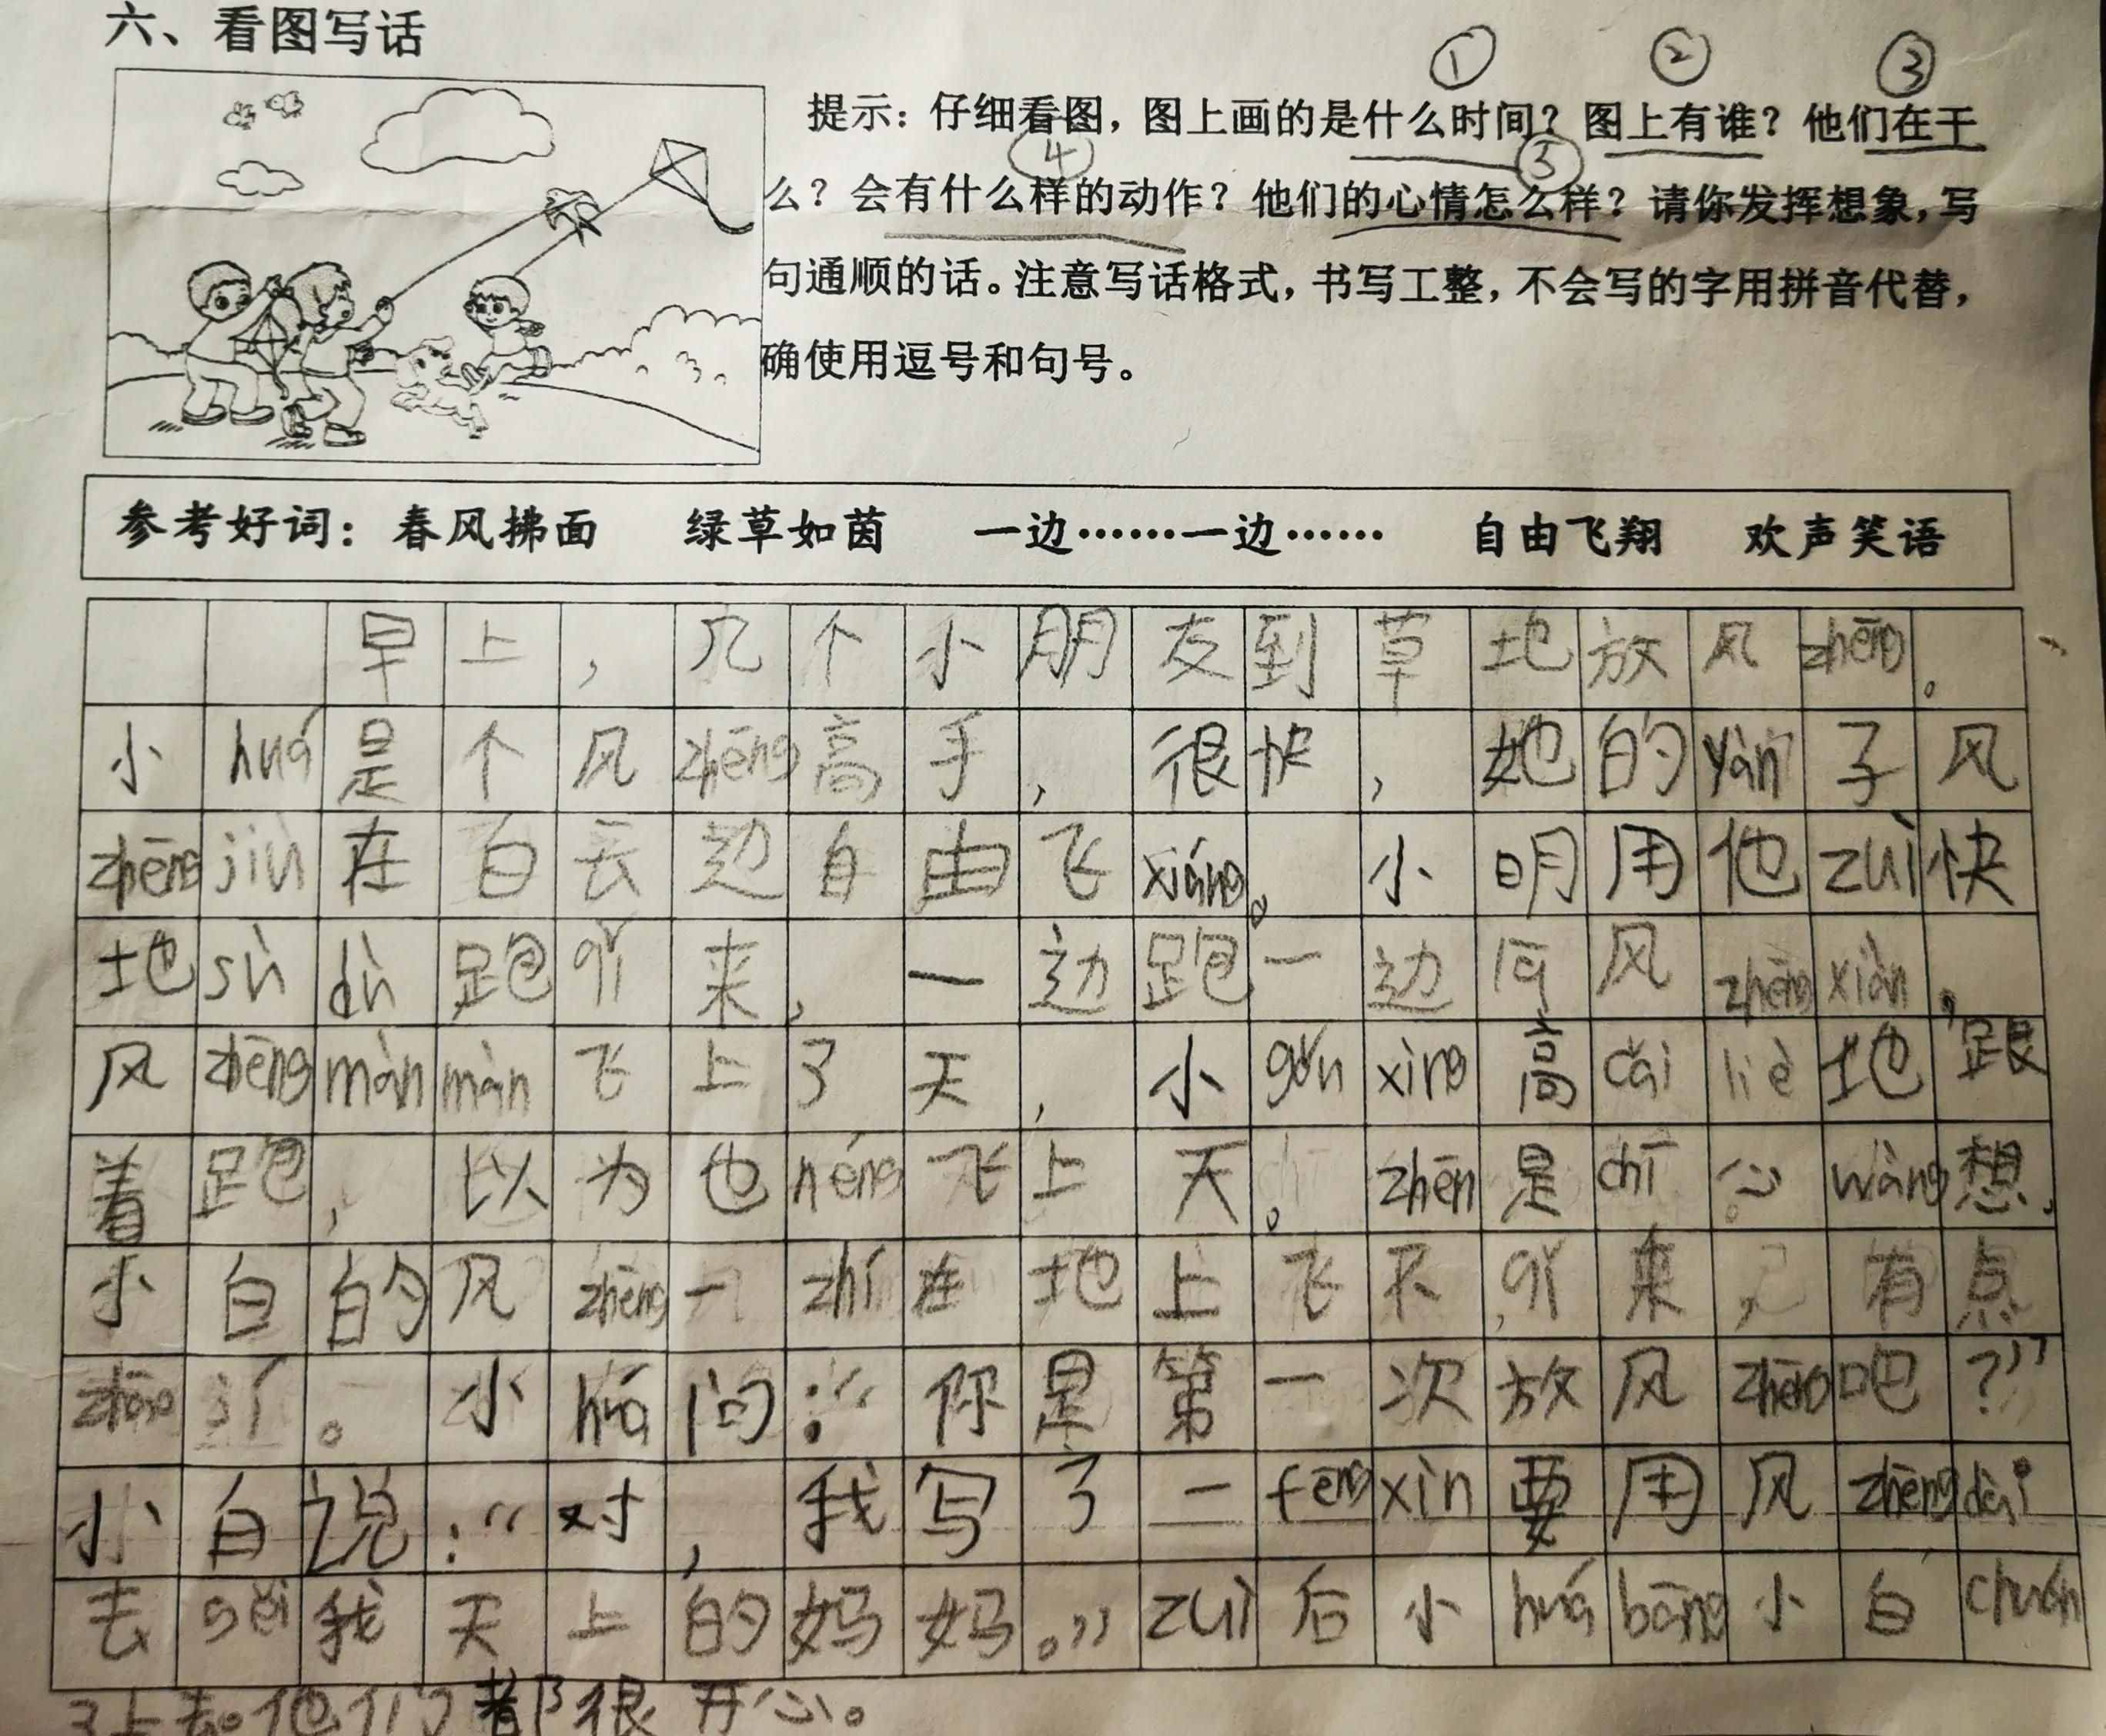 六、看图写话
① ② ③
提示：仔细看图，图上画的是什么时间？图上有谁？他们在干
④ ⑤
么？会有什么样的动作？他们的心情怎么样？请你发挥想象，写
句通顺的话。注意写话格式，书写工整，不会写的字用拼音代替，
确使用逗号和句号。
参考好词：春风拂面 绿草如茵 一边……一边…… 自由飞翔 欢声笑语
早上，几个小朋友到草地放风zhēng。
小huá是个风zhēng高手，很快，她的yàn子风
zhēng jiù在白云边自由飞xiáng。小明用他zuì快
地sù dù跑qǐ来，一边跑一边 风zhēng xiàn，
风zhēng màn màn飞上了天，小gǒu xìng高cǎi liè地跟
着跑，以为也néng飞上天。zhēn是chī心wàng想，
小白的风zhēng一zhí在地上飞不qǐ来，有点
。小huá问：“你是第一次放风zhēng吧？”
小白说：“对，我写了一fēng xìn要用风zhēng dài
去gěi我天上的妈妈。”zuì后小huá bāng小白chuán
了上去。他们都很开心。